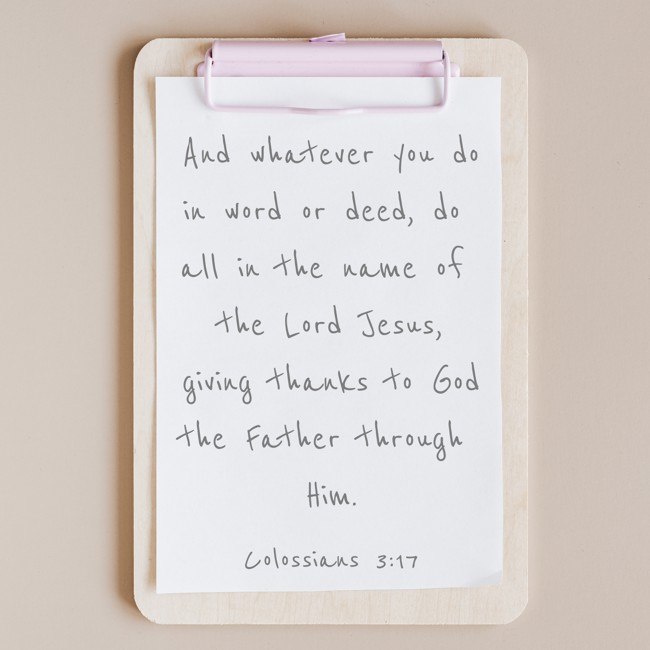 And whatever you do
in word or deed, do
all in the name of
the Lord Jesus,
giving thanks to God
the Father through
Him.
Colossians 3:17